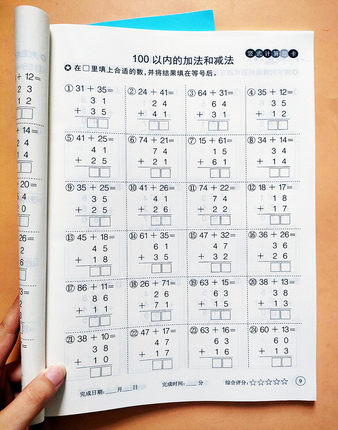 100 以内的加法和减法
竖式计算题卡
✪ 在□里填上合适的数,并将结果填在等号后。
① 31 + 35= ② 24 + 41= ③ 64 + 31= ④ 35 + 12=
3 1 2 4 6 4 3 5
+ 3 5 + 4 1 + 3 1 + 1 2
⑤ 41 + 25= ⑥ 74 + 21= ⑦ 15 + 61= ⑧ 34 + 14=
4 1 7 4 1 5 3 4
+ 2 5 + 2 1 + 6 1 + 1 4
⑨ 35 + 25= ⑩ 41 + 26= ⑪ 74 + 22= ⑫ 18 + 17=
3 5 4 1 7 4 1 8
+ 2 5 + 2 6 + 2 2 + 1 7
⑬ 45 + 18= ⑭ 61 + 35= ⑮ 47 + 32= ⑯ 36 + 26=
4 5 6 1 4 7 3 6
+ 1 8 + 3 5 + 3 2 + 2 6
⑰ 86 + 11= ⑱ 26 + 71= ⑲ 63 + 15= ⑳ 38 + 13=
8 6 2 6 6 3 3 8
+ 1 1 + 7 1 + 1 5 + 1 3
㉑ 38 + 10= ㉒ 47 + 17= ㉓ 63 + 16= ㉔ 60 + 13=
3 8 4 7 6 3 6 0
+ 1 0 + 1 7 + 1 6 + 1 3
完成日期:__月__日 完成时间:__分 综合评分:☆☆☆☆☆ 9